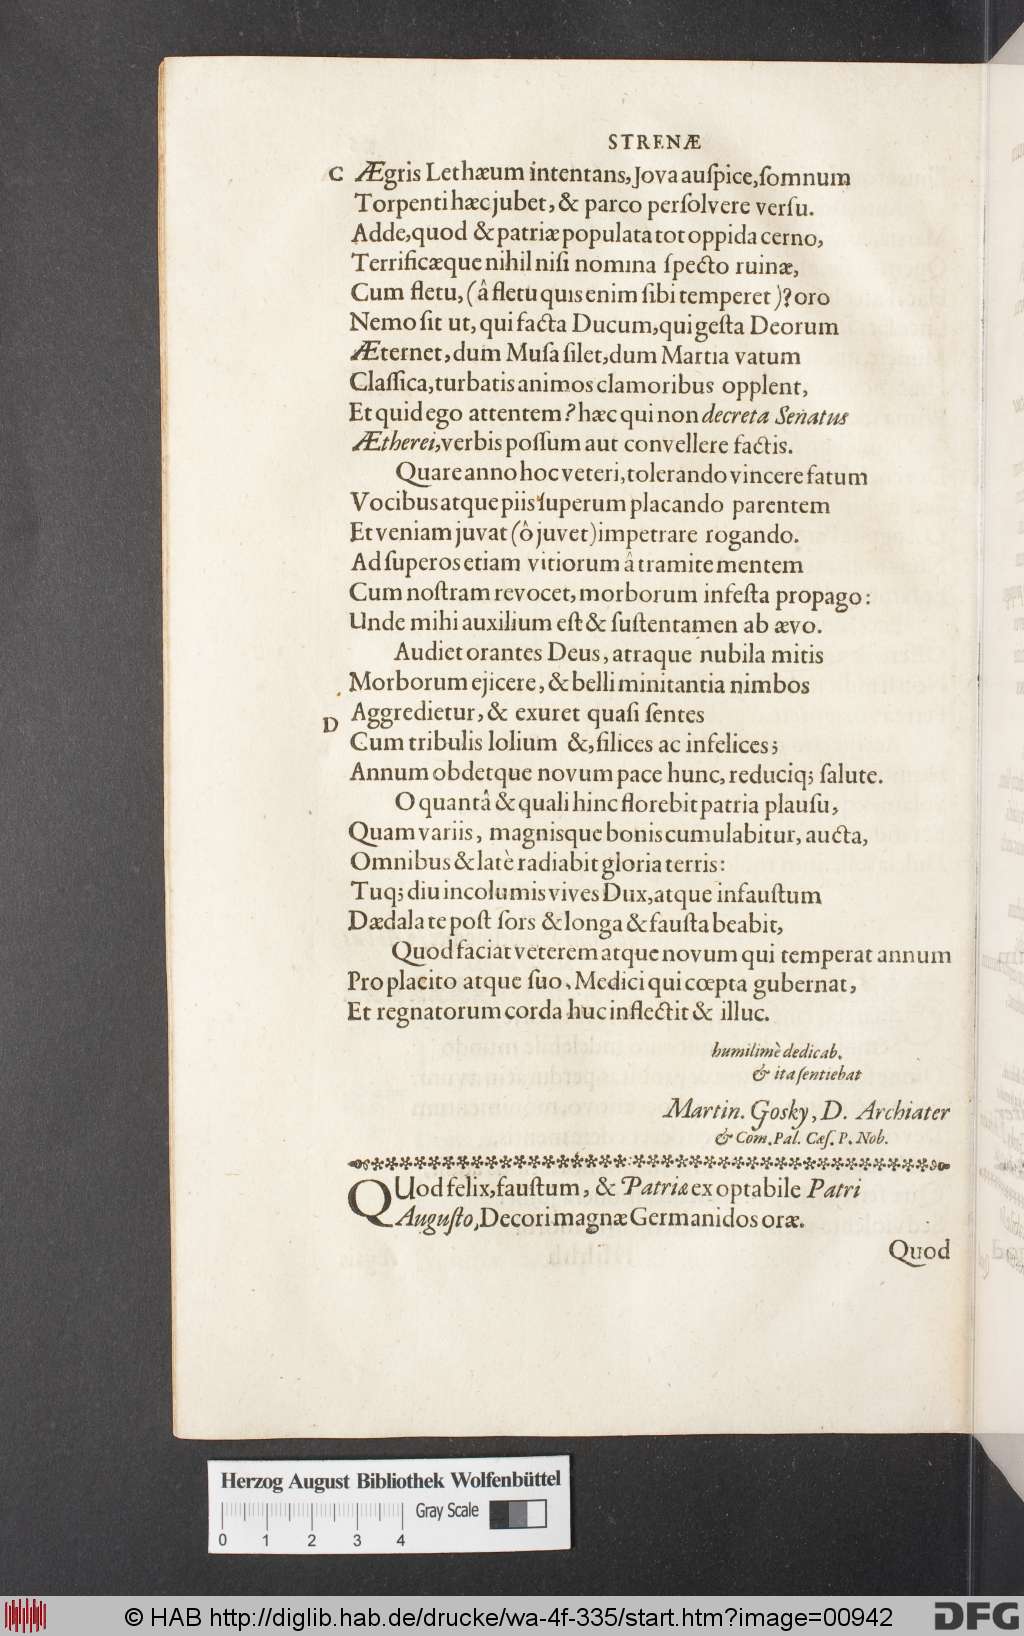 STRENÆ
C Ægris Lethæum intentans, Jova auſpice, ſomnum
Torpenti hæc jubet, & parco perſolvere verſu.
Adde, quod & patriæ populata tot oppida cerno,
Terrificæque nihil niſi nomina ſpecto ruinæ,
Cum fletu, (â fletu quis enim ſibi temperet)? oro
Nemo ſit ut, qui facta Ducum, qui geſta Deorum
Æternet, dum Muſa ſilet, dum Martia vatum
Claſſica, turbatis animos clamoribus opplent,
Et quid ego attentem? hæc qui non decreta Senatus
Ætherei, verbis poſſum aut convellere factis.
Quare anno hoc veteri, tolerando vincere fatum
Vocibus atque piis ſuperum placando parentem
Et veniam juvat (ô juvet) impetrare rogando.
Ad ſuperos etiam vitiorum â tramite mentem
Cum noſtram revocet, morborum infeſta propago:
Unde mihi auxilium eſt & ſuſtentamen ab ævo.
Audiet orantes Deus, atraque nubila mitis
Morborum ejicere, & belli minitantia nimbos
D Aggredietur, & exuret quaſi ſentes
Cum tribulis lolium &, filices ac infelices;
Annum obdetque novum pace hunc, reduciq; ſalute.
O quantâ & quali hinc florebit patria plauſu,
Quam variis, magnisque bonis cumulabitur, aucta,
Omnibus & latè radiabit gloria terris:
Tuq; diu incolumis vives Dux, atque infauſtum
Dædala te poſt ſors & longa & fauſta beabit,
Quod faciat veterem atque novum qui temperat annum
Pro placito atque ſuo, Medici qui cœpta gubernat,
Et regnatorum corda huc inflectit & illuc.
humilimè dedicab.
& ita ſentiebat
Martin. Gosky, D. Archiater
& Com. Pal. Cæſ. P. Nob.
QUod felix, fauſtum, & Patriæ exoptabile Patri
Auguſto, Decori magnæ Germanidos oræ.
Quod
Herzog August Bibliothek Wolfenbüttel
Gray Scale
0 1 2 3 4
© HAB http://diglib.hab.de/drucke/wa-4f-335/start.htm?image=00942
DFG